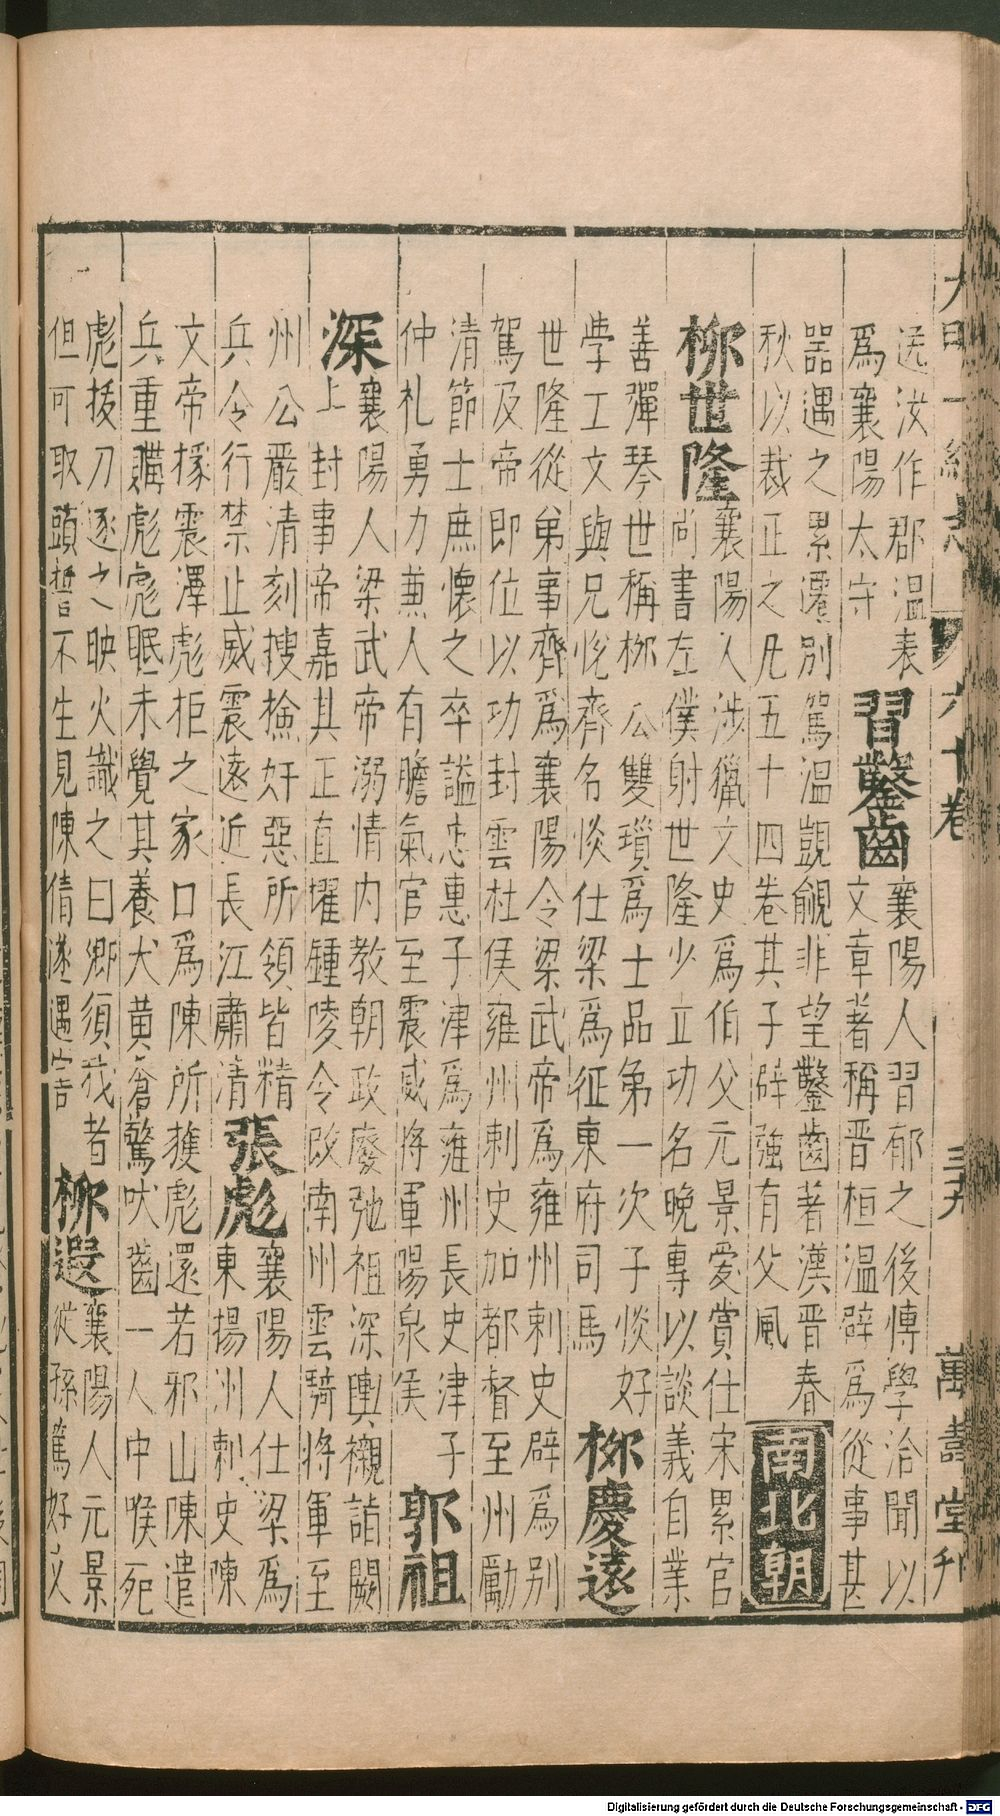 大明一統志 六十卷 三九 萬壽堂刊
送汝作郡溫表
爲襄陽太守
習鑿齒
襄陽人習郁之後愽學洽聞以
文章著稱晉桓溫辟爲從事甚
器遇之累遷別駕溫覬覦非望鑿齒著漢晉春
秋以裁正之凡五十四卷其子辟強有父風
南北朝
柳世隆
襄陽人涉獵文史爲伯父元景愛賞仕宋累官
尚書左僕射世隆少立功名晚專以談義自業
善彈琴世稱柳公雙璅爲士品第一次子惔好
學工文與兄悅齊名惔仕梁爲征東府司馬
柳慶遠
世隆從弟事齊爲襄陽令梁武帝爲雍州刺史辟爲別
駕及帝即位以功封雲杜侯雍州刺史加都督至州勵
清節士庶懷之卒謚忠惠子津爲雍州長史津子
仲札勇力兼人有膽氣官至震威將軍陽泉侯
郭祖
深
襄陽人梁武帝溺情內教朝政廢弛祖深輿櫬詣闕
上封事帝嘉其正直擢鍾陵令改南州雲騎將軍至
州公嚴清刻搜檢奸惡所領皆精
兵令行禁止威震遠近長江肅清
張彪
襄陽人仕梁爲
東揚州刺史陳
文帝據震澤彪拒之家口爲陳所獲彪還若邪山陳遣
兵重購彪彪眠未覺其養犬黃蒼驚吠齧一人中喉死
彪拔刀逐之映火識之曰卿須我者
但可取頭誓不生見陳倩遂遇害
柳遐
襄陽人元景
從孫篤好文
Digitalisierung gefördert durch die Deutsche Forschungsgemeinschaft - DFG